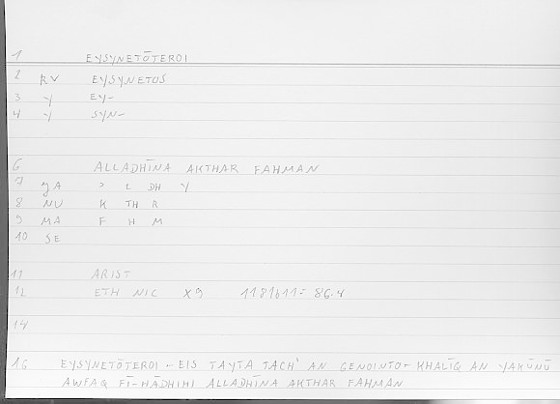 1 EYSYNETŌTEROI
2 RV EYSYNETOS
3 Y EY-
4 Y SYN-
6 ALLADHĪNA AKTHAR FAHMAN
7 gA > L DH Y
8 NU K TH R
9 MA F H M
10 SE
11 ARIST
12 ETH NIC X9 1181b11 = 86.4
14
16 EYSYNETŌTEROI - EIS TAYTA TACH' AN GENOINTO - KHALĪQ AN YAKŪNŪ
AWFAQ FĪ-HĀDHIHI ALLADHĪNA AKTHAR FAHMAN